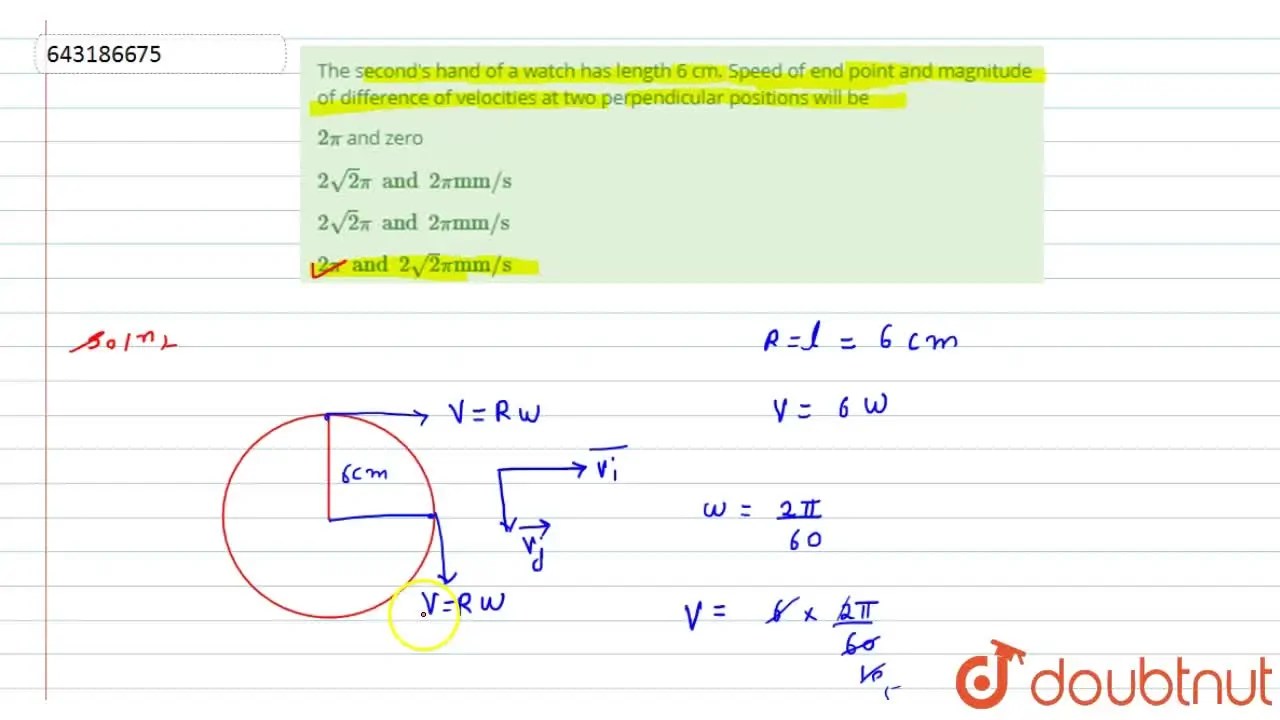 643186675
The second's hand of a watch has length 6 cm. Speed of end point and magnitude
of difference of velocities at two perpendicular positions will be
2π and zero
2√2π and 2πmm/s
2√2π and 2πmm/s
2π and 2√2πmm/s
Soln
R = l = 6 cm
V = Rω
V = 6 ω
6cm
Vi
ω = 2π/60
V = Rω
V = 6 × 2π/60
10
doubtnut